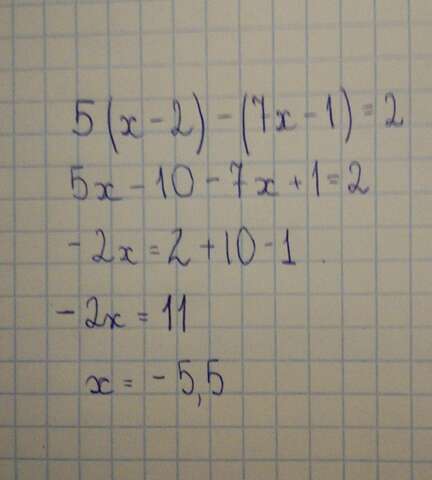 5(x - 2) - (7x - 1) = 2
5x - 10 - 7x + 1 = 2
- 2x = 2 + 10 - 1
- 2x = 11
x = - 5,5